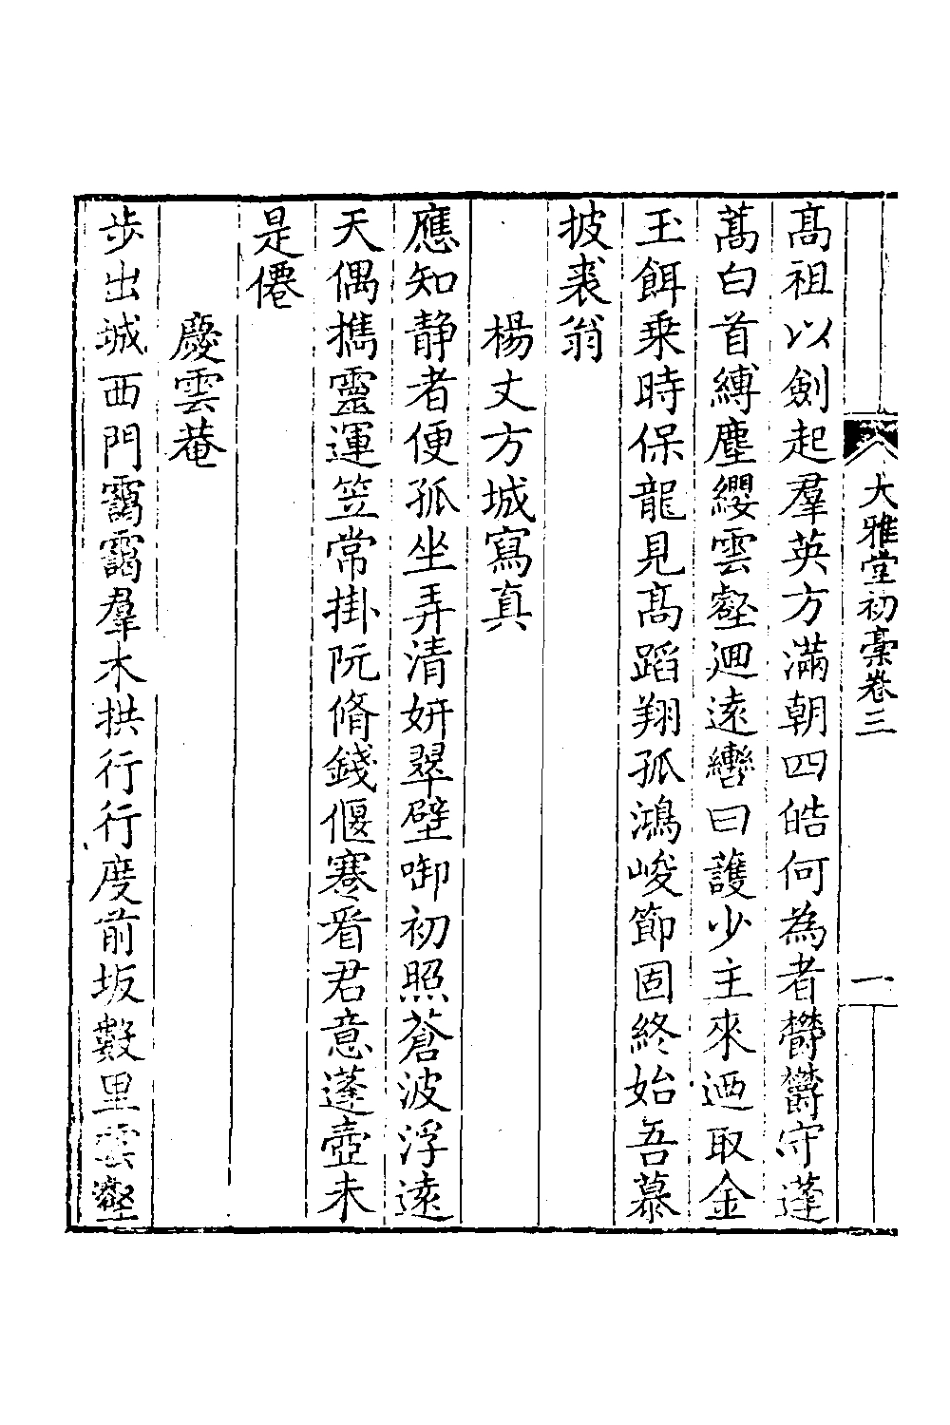 大雅堂初稾卷三
一
髙祖以劍起羣英方滿朝四皓何為者欝欝守蓬
蒿白首縛塵纓雲壑迴遠轡曰護少主來迺取金
玉餌乗時保龍見髙蹈翔孤鴻峻節固終始吾慕
披裘翁
楊丈方城寫真
應知静者便孤坐弄清妍翠壁啣初照蒼波浮遠
天偶攜靈運笠常掛阮脩錢偃蹇看君意蓬壺未
是僊
慶雲菴
步出城西門靄靄羣木拱行行度前坂數里雲壑